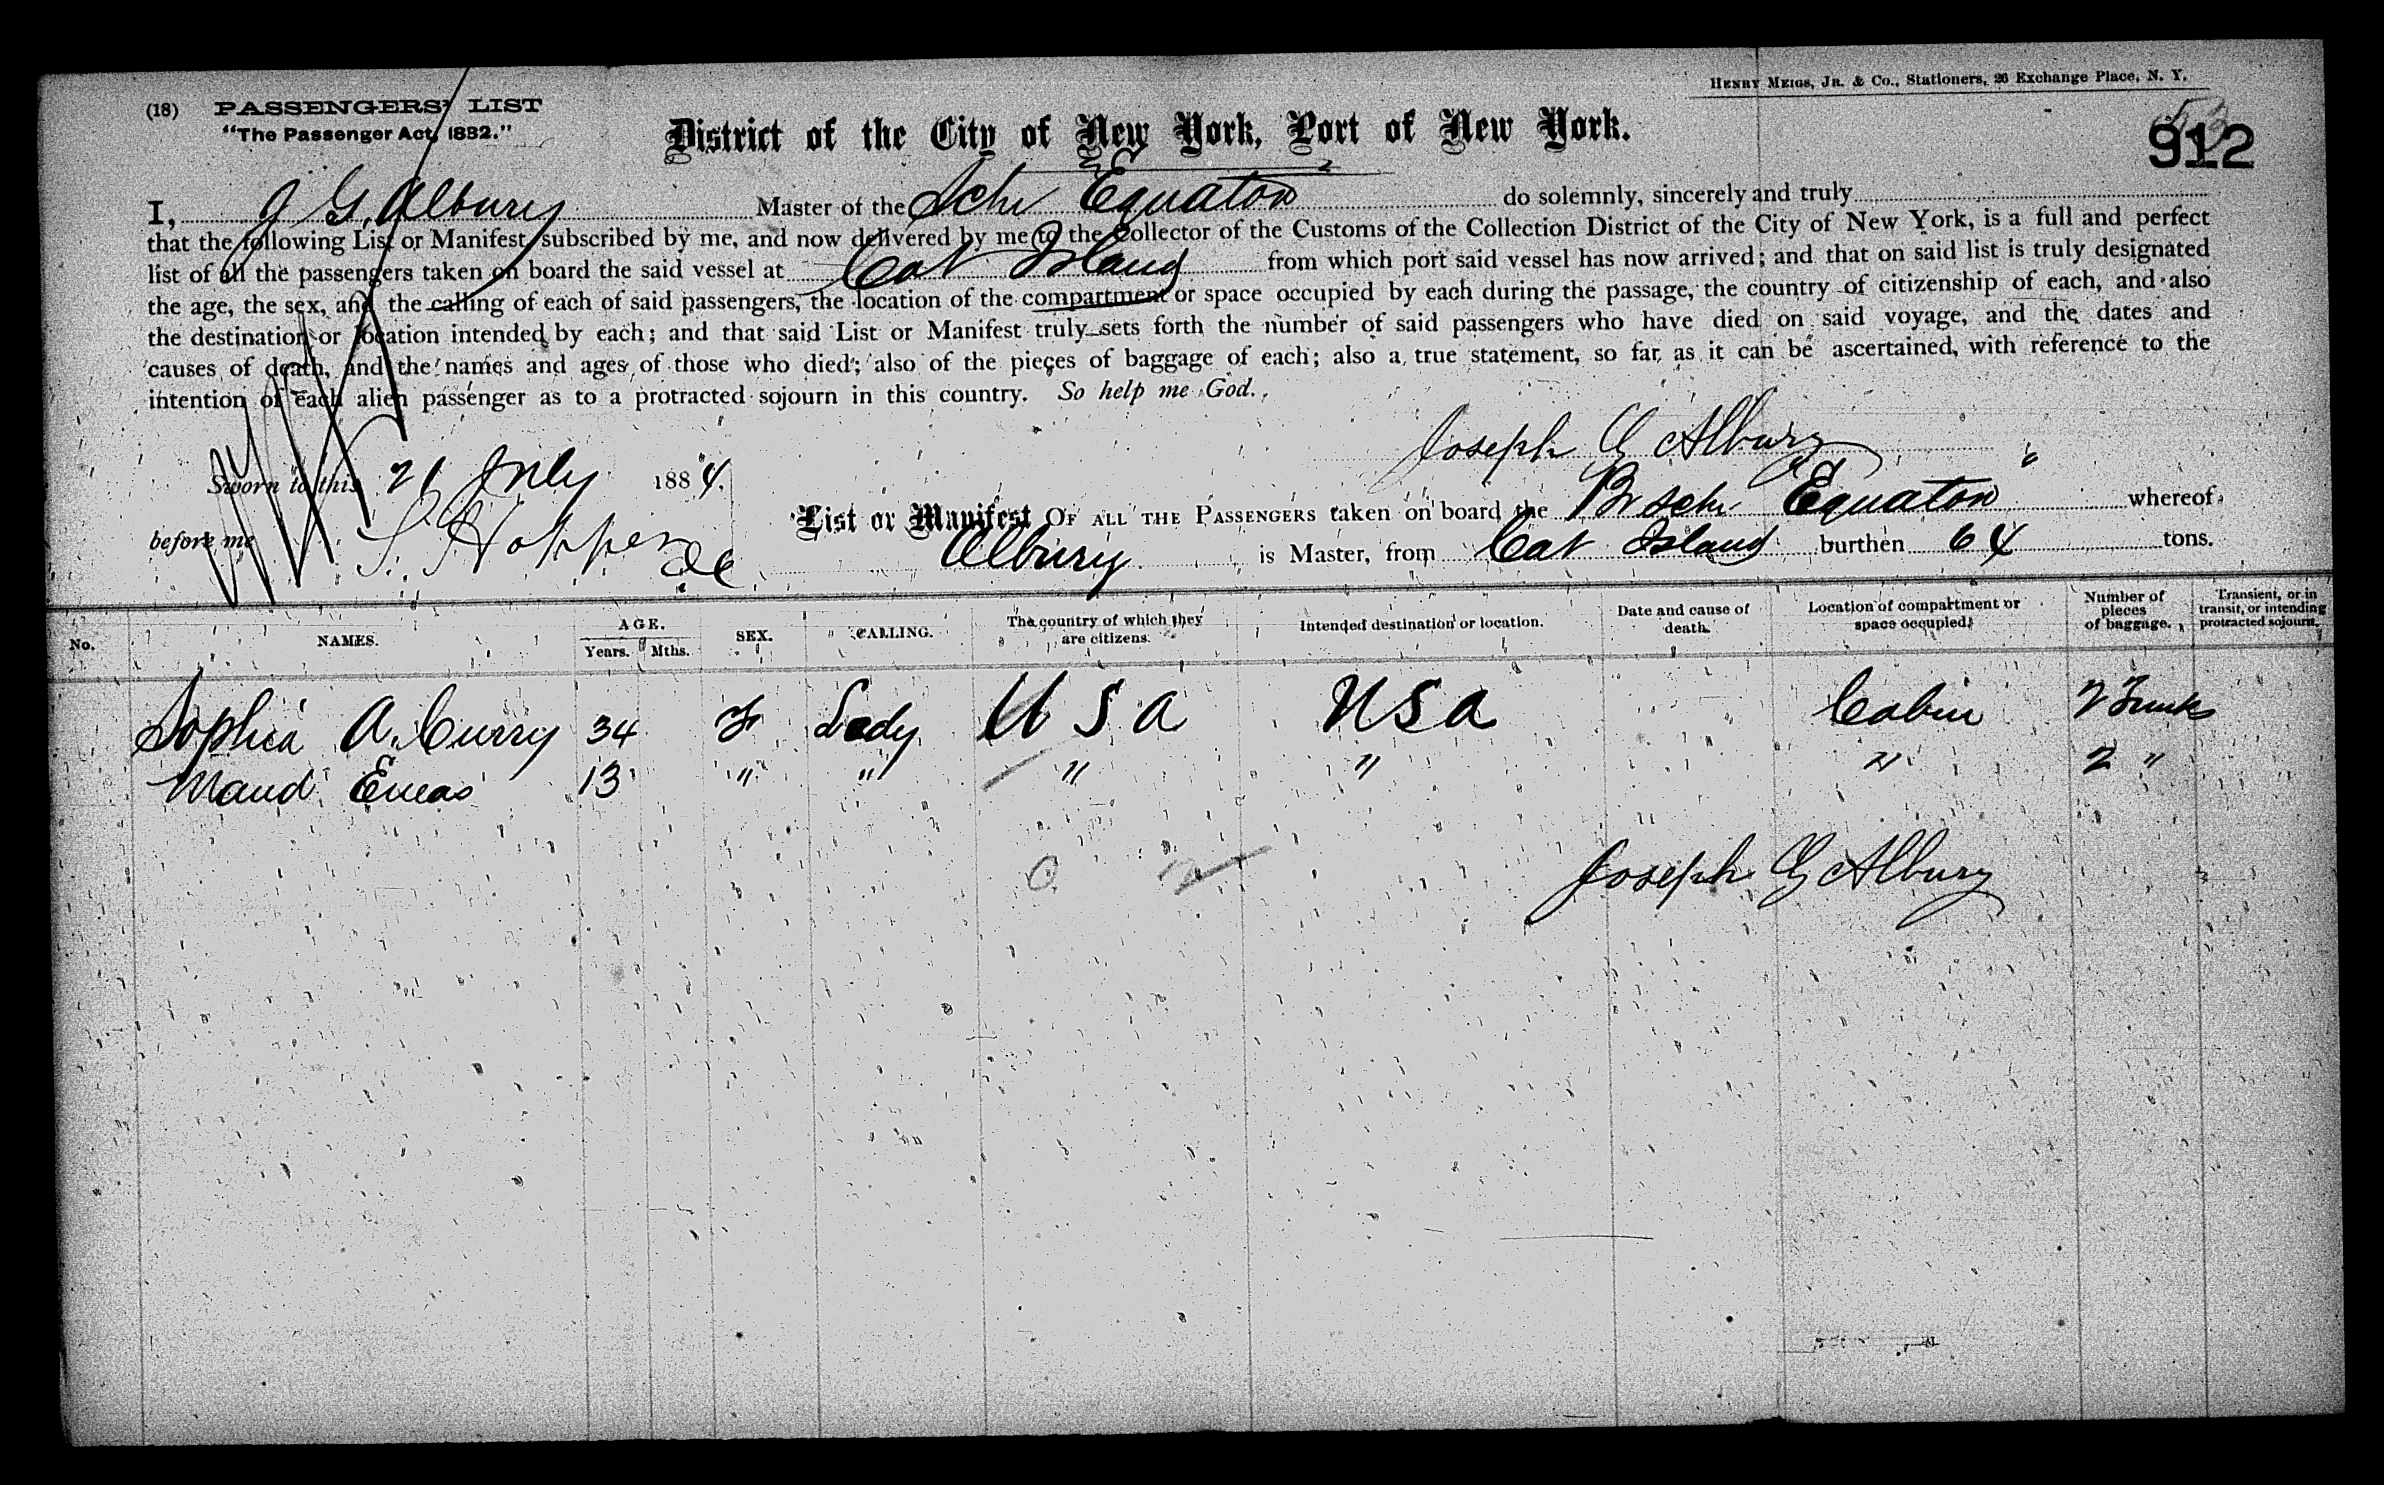 HENRY MEIGS, JR. & CO., Stationers, 26 Exchange Place, N. Y.
(18) PASSENGERS' LIST
"The Passenger Act, 1882."
District of the City of New York, Port of New York.
912
I, J G. Albury Master of the Schr Equator do solemnly, sincerely and truly
that the following List or Manifest, subscribed by me, and now delivered by me to the Collector of the Customs of the Collection District of the City of New York, is a full and perfect
list of all the passengers taken on board the said vessel at Cat Island from which port said vessel has now arrived; and that on said list is truly designated
the age, the sex, and the calling of each of said passengers, the location of the compartment or space occupied by each during the passage, the country of citizenship of each, and also
the destination or location intended by each; and that said List or Manifest truly sets forth the number of said passengers who have died on said voyage, and the dates and
causes of death, and the names and ages of those who died; also of the pieces of baggage of each; also a true statement, so far as it can be ascertained, with reference to the
intention of each alien passenger as to a protracted sojourn in this country. So help me God.
Joseph G Albury
Sworn to this 21 July 1884.
before me
List or Manifest OF ALL THE PASSENGERS taken on board the Br Schr Equator whereof
Albury is Master, from Cat Island burthen 64 tons.
No. NAMES. AGE. Years. Mths. SEX. CALLING. The country of which they are citizens. Intended destination or location. Date and cause of death. Location of compartment or space occupied. Number of pieces of baggage. Transient, or in transit, or intending protracted sojourn.
Sophia A. Curry 34 F Lady U S A U S A Cabin 2 Trunks
Maud Eneas 13 " " " " " 2 "
Joseph G Albury